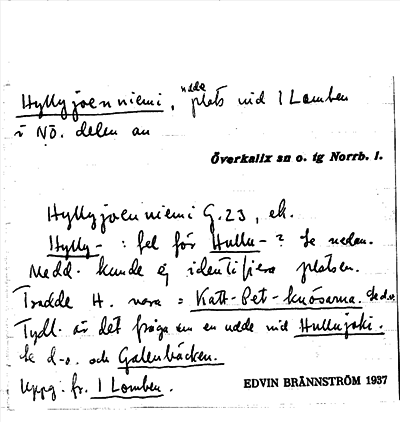 udde
Hyllyjoenniemi, plats vid 1 Lomben
i NÖ. delen av
Överkalix sn o. tg Norrb. l.
Hyllyjoenniemi G.23, ek.
Hylly- : fel för Hullu- ? Se nedan.
Medd. kunde ej identifiera platsen.
Trodde H. vara = Katt-Pet-knösarna. Se d.o.
Tydl. är det fråga om en udde vid Hullujoki.
Se d.o. och Galenbäcken.
Uppg. fr. 1 Lomben.
EDVIN BRÄNNSTRÖM 1937